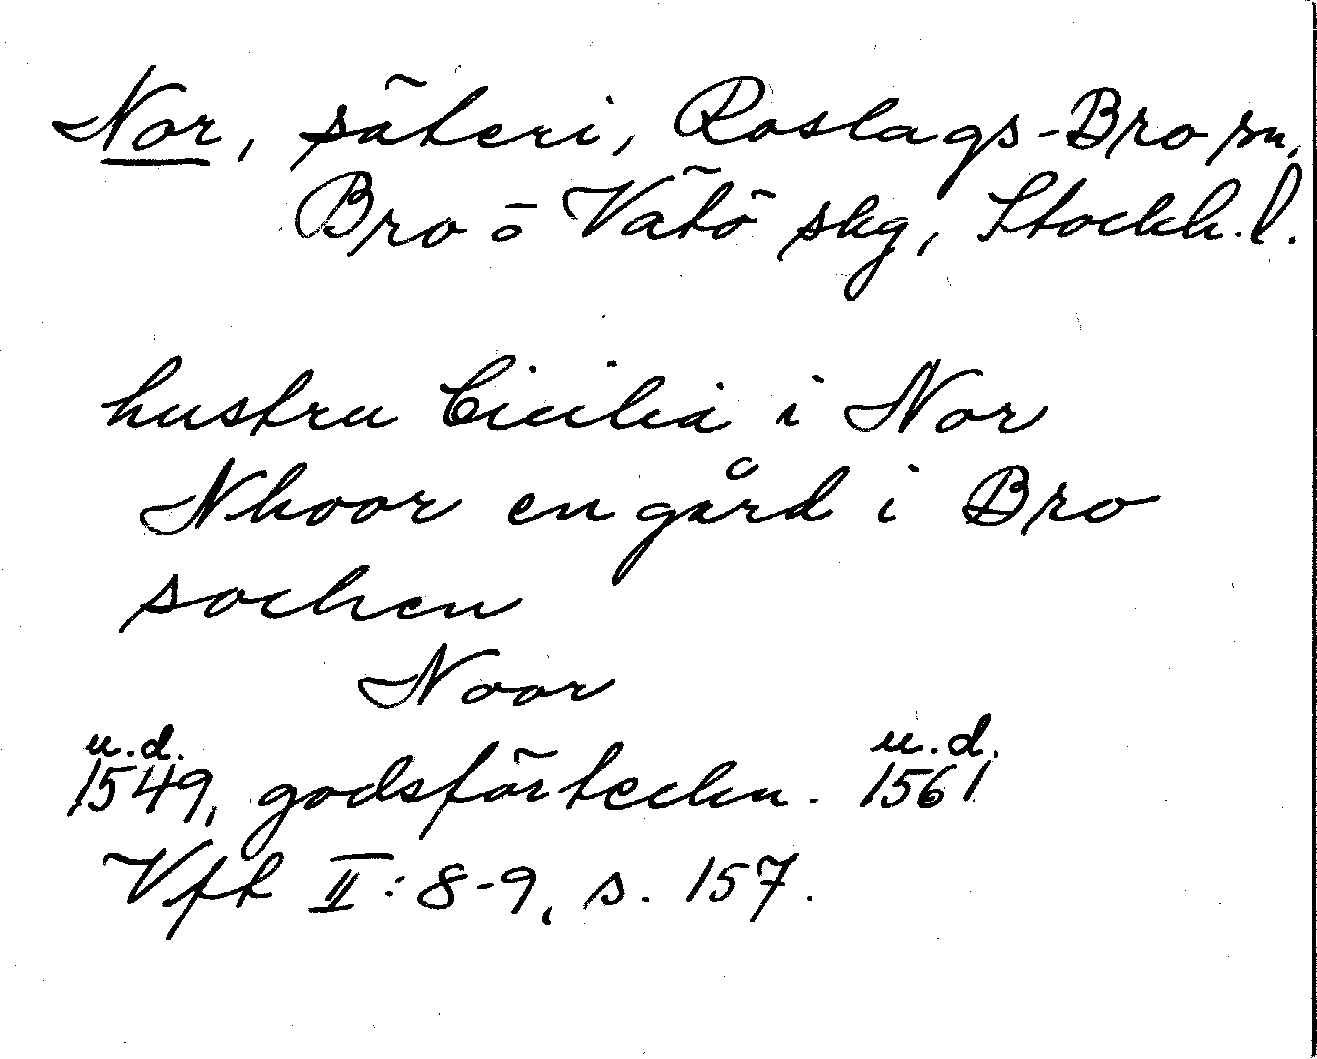 Nor, säteri, Roslags-Bro sn,
Bro o Vätö skg, Stockh. l.
hustru Cicilia i Nor
Nhoor en gård i Bro
sochen
Noor
u.d. u.d.
1549, godsförteckn. 1561
Vfk II: 8-9, s. 157.